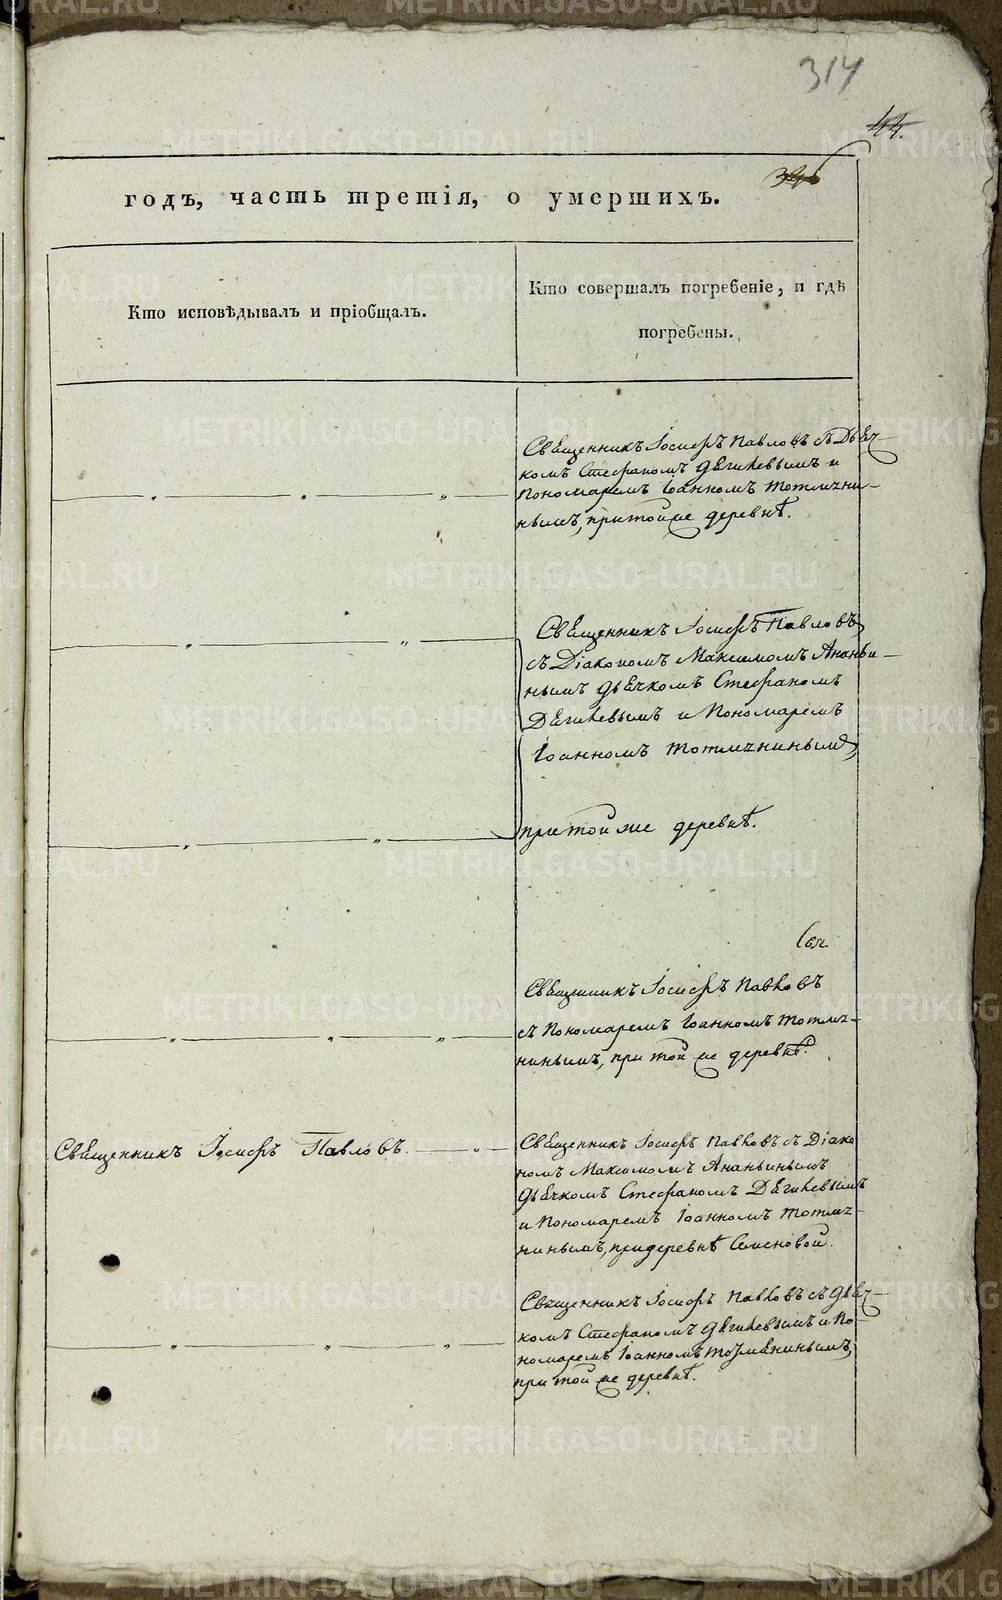 314
44.
годъ, часть третія, о умершихъ.
Кто исповѣдывалъ и пріобщалъ.
Кто совершалъ погребеніе, и гдѣ
погребены.
Священникъ Іосифъ Павловъ съ Дьяч-
комъ Стефаномъ Дягилевымъ и
Пономаремъ Іоанномъ Тотмяни-
нымъ, при той же деревнѣ.
Священникъ Іосифъ Павловъ,
съ Діакономъ Максимомъ Ананьи-
нымъ Дьячкомъ Стефаномъ
Дягилевымъ и Пономаремъ
Іоанномъ Тотмянинымъ,
при той же деревнѣ.
Священникъ Іосифъ Павловъ
съ Пономаремъ Іоанномъ Тотмя-
нинымъ, при той же деревнѣ.
Священникъ Іосифъ Павловъ.
Священникъ Іосифъ Павловъ съ Діако
номъ Максимомъ Ананьинымъ
Дьячкомъ Стефаномъ Дягилевымъ
и Пономаремъ Іоанномъ Тотмя-
нинымъ, при деревнѣ Семеновой.
Священникъ Іосифъ Павловъ съ Дьяч-
комъ Стефаномъ Дягилевымъ и По-
номаремъ Іоанномъ Тотмянинымъ,
при той же деревнѣ.
METRIKI.GASO-URAL.RU